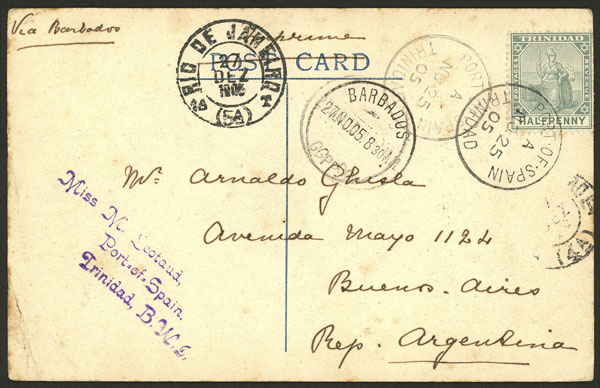 Via Barbados
POST CARD
RIO DE JANEIRO
27
DEZ
1905
(5A)
BARBADOS
27.NO.05.8.30AM
G.P.O.
PORT-OF-SPAIN
A
NO 25
05
TRINIDAD
PORT-OF-SPAIN
A
25
05
TRINIDAD
TRINIDAD
POSTAGE
HALFPENNY
(4A)
Mr. Arnaldo Ghisla
Avenida Mayo 1124
Buenos-Aires
Rep. Argentina
Miss M. Leotaud,
Port-of-Spain,
Trinidad, B.W.I.